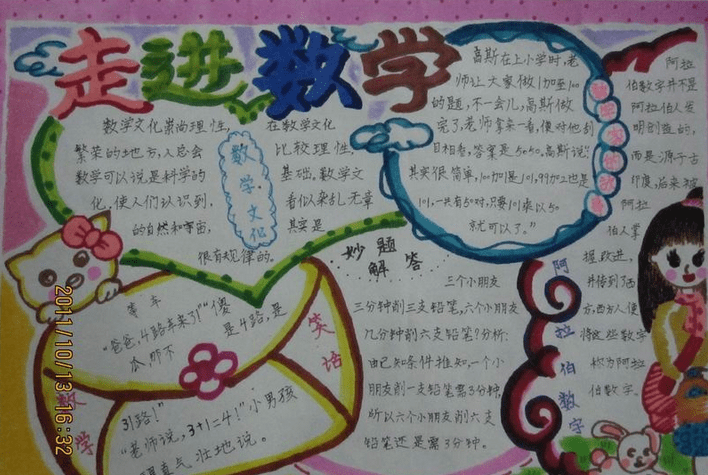 走进数学
数学文化崇尚理性,
繁荣的地方,人总会
数学可以说是科学的
化,使人们认识到,
的自然和宇宙,
很有规律的。
在数学文化
比较理性,
基础。数学文
看似杂乱无章
其实是
数学·文化
高斯在上小学时,老
师让大家做1加至100
的题,不一会儿,高斯做
完了,老师拿来一看,便对他刮
目相看,答案是5050,高斯说:"
其实很简单,100加1是101,99加2也是
101,一共有50对,只要101乘以50
就可以了。"
数学家的故事
阿拉
伯数字并不是
阿拉伯人发
明创造的,
而是源于古
印度,后来被
阿拉
伯人掌
握、改进,
并传到了西
方,西方人便
将这些数字
称为阿拉
伯数字
阿拉伯数字
妙题
解答
三个小朋友
三分钟削三支铅笔,六个小朋友
几分钟削六支铅笔?分析:
由已知条件推知,一个小
朋友削一支铅笔需3分钟,
所以六个小朋友削六支
铅笔还是需3分钟。
等车
"爸爸,4路车来了!""傻
瓜,那不
是4路,是
31路!"
"老师说,3+1=4!"小男孩
气壮地说。
数学
笑话
2011/10/13 16:32